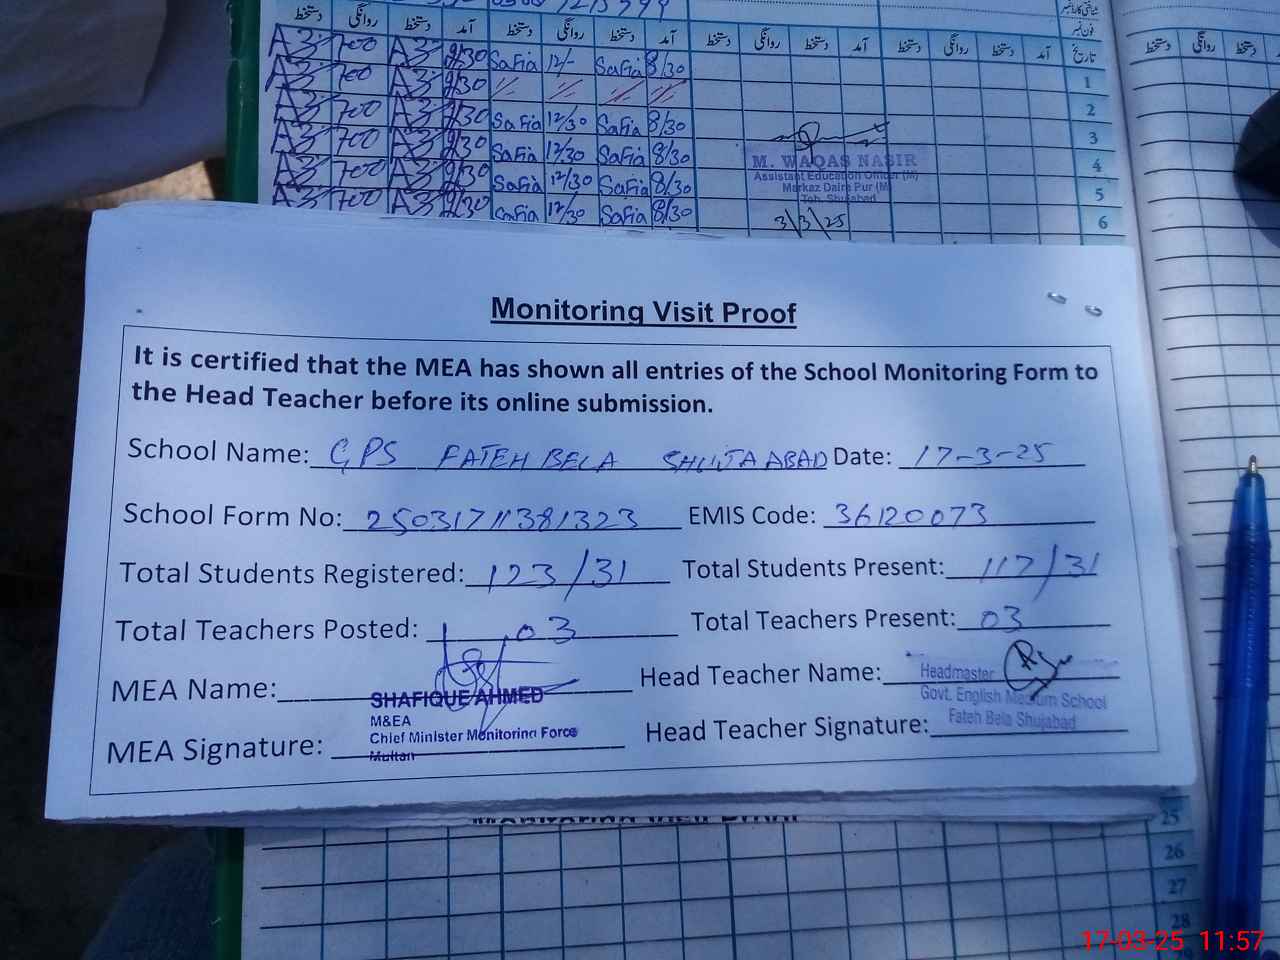 دستخط روانگی دستخط آمد دستخط روانگی دستخط آمد دستخط روانگی دستخط آمد دستخط روانگی دستخط آمد تاریخ
A3 700 A3 9/30 Safia 12/- Safia 8/30 1
A3 700 A3 9/30 2
A3 700 A3 9/30 Safia 12/30 Safia 8/30 3
A3 700 A3 9/30 Safia 12/30 Safia 8/30 4
A3 700 A3 9/30 Safia 12/30 Safia 8/30 5
A3 700 A3 9/30 Safia 12/30 Safia 8/30 6
M. WAQAS NASIR
Assistant Education Officer (M)
Markaz Daira Pur (M)
Teh. Shujabad
3/3/25
Monitoring Visit Proof
It is certified that the MEA has shown all entries of the School Monitoring Form to
the Head Teacher before its online submission.
School Name: GPS FATEH BELA SHUJAABAD Date: 17-3-25
School Form No: 25031711381323 EMIS Code: 36120073
Total Students Registered: 123/31 Total Students Present: 117/31
Total Teachers Posted: 03 Total Teachers Present: 03
MEA Name: SHAFIQUE AHMED Head Teacher Name: Headmaster
M&EA Govt. English Medium School
Chief Minister Monitoring Force Fateh Bela Shujabad
Multan
MEA Signature: Head Teacher Signature:
Monitoring Visit Proof
25
26
27
28
17-03-25 11:57